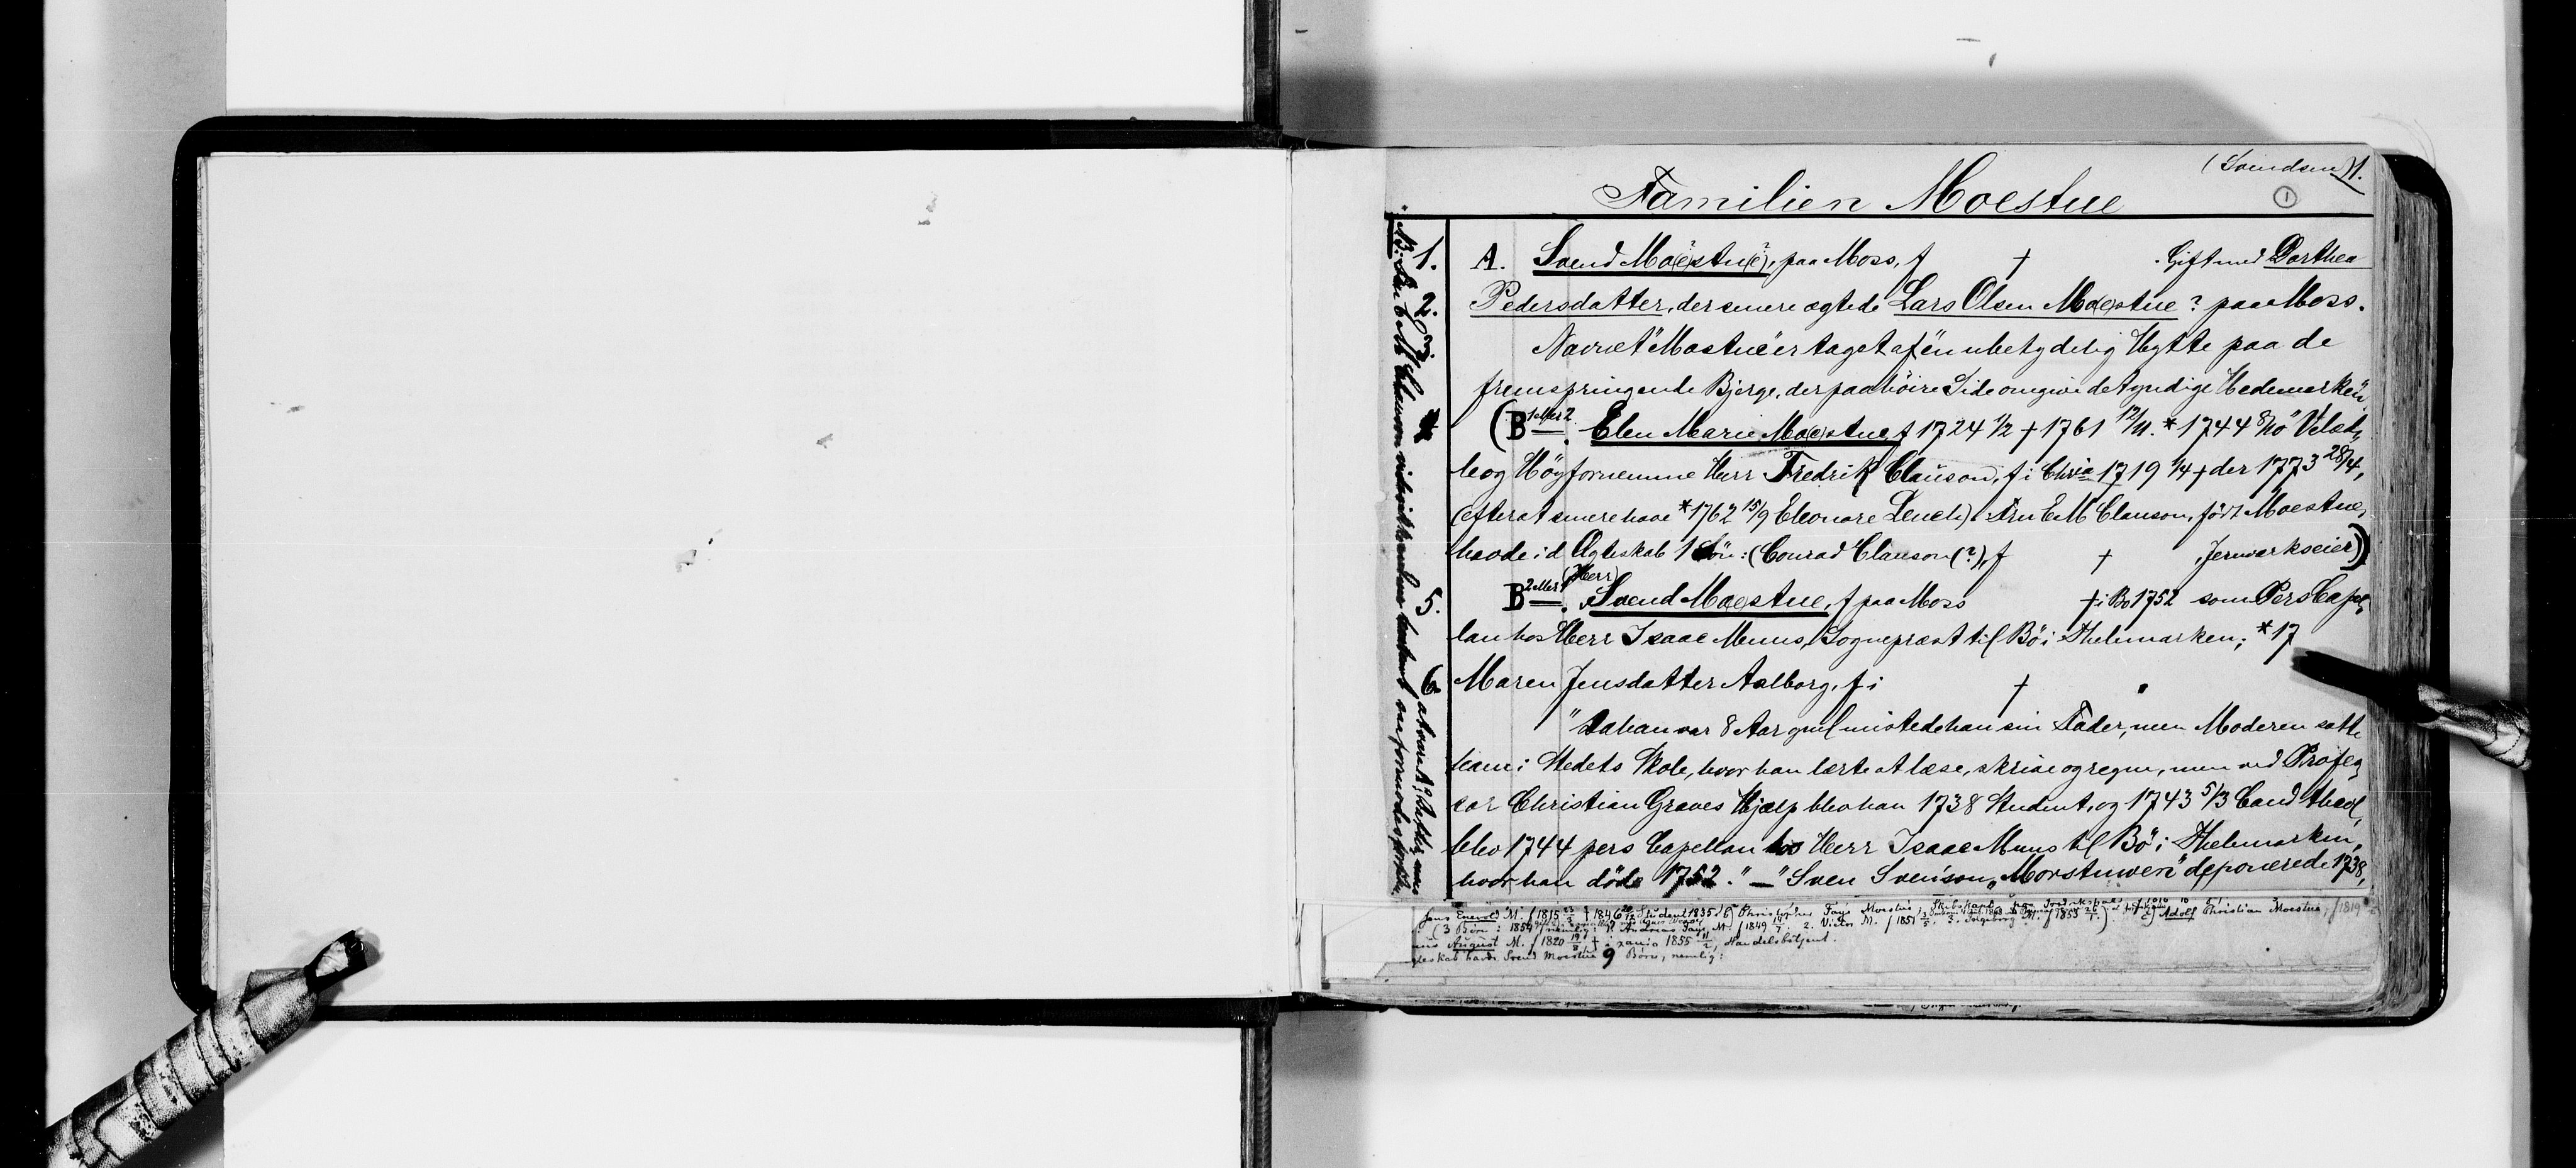 (Svendsen) 1.
Familien Moestue
1
1. A. Svend Mo(e)stu(e), paa Moss, f † Gift med Dorthea
2. Pedersdatter, der senere ægtede Lars Olsen Mo(e)stue? paa Moss.
Navnet "Mostue" er taget af "en ubetydelig Hytte paa de
fremspringende Bjerge, der paa höire Side omgive det yndige Hedemarken"
(B 1 eller 2. Elen Marie Mo(e)stue, f 1724 1/2 † 1761 12/11. * 1744 8/10 "Velæd-
le og Höyfornemme Herr Fredrik Clauson, f i Chria 1719 1/4 † der 1773 28/4,
(efterat senere have * 1762 15/9 Eleonore Leuch). Fru E M Clauson, födt Moestue,
havde i d Ægteskab 1 Sön: (Conrad Clauson (?), f † Jernværkseier))
5. B 2 eller 1. (Herr) Svend Mo(e)stue, f paa Moss † i Bö 1752 som Pers Capel-
lan hos Herr Isaac Muus, Sognepræst til Bö i Thelemarken; * 17
6 Maren Jensdatter Aalborg, f i †
"Da han var 8 Aar gml mistede han sin Fader, men Moderen satte
ham i Stedets Skole, hvor han lærte at læse, skrive og regne, men ved Profes-
sor Christian Graves Hjælp blev han 1738 Student, og 1743 5/3 Cand theol,
blev 1744 pers Capellan hos Herr Isaac Muus til Bö i Thelemarken,
hvor han döde 1752." — "Sven Svenson "Morstuwen" deponerede 1738,
Jens Enevold M. f 1815 † 1846 Student 1835 b) Christopher Faye Moestue, c) Adolf Christian Moestue, f 1819
(3 Børn: Andreas Faye M. f 1849 2. Victor M. f 1851 3. Ingeborg M. f 1853
August M. f 1820 19/3 † i Xania 1855 11/2, Handelsbetjent.
havde Svend Moestue 9 Børn, nemlig: